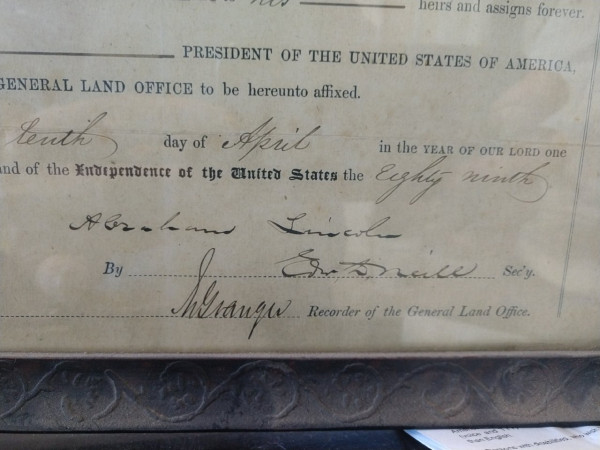 his heirs and assigns forever.
PRESIDENT OF THE UNITED STATES OF AMERICA,
GENERAL LAND OFFICE to be hereunto affixed.
tenth day of April in the YEAR OF OUR LORD one
and of the Independence of the United States the Eighty ninth
Abraham Lincoln
By Edw D. Neill Sec'y.
Granger Recorder of the General Land Office.
than English